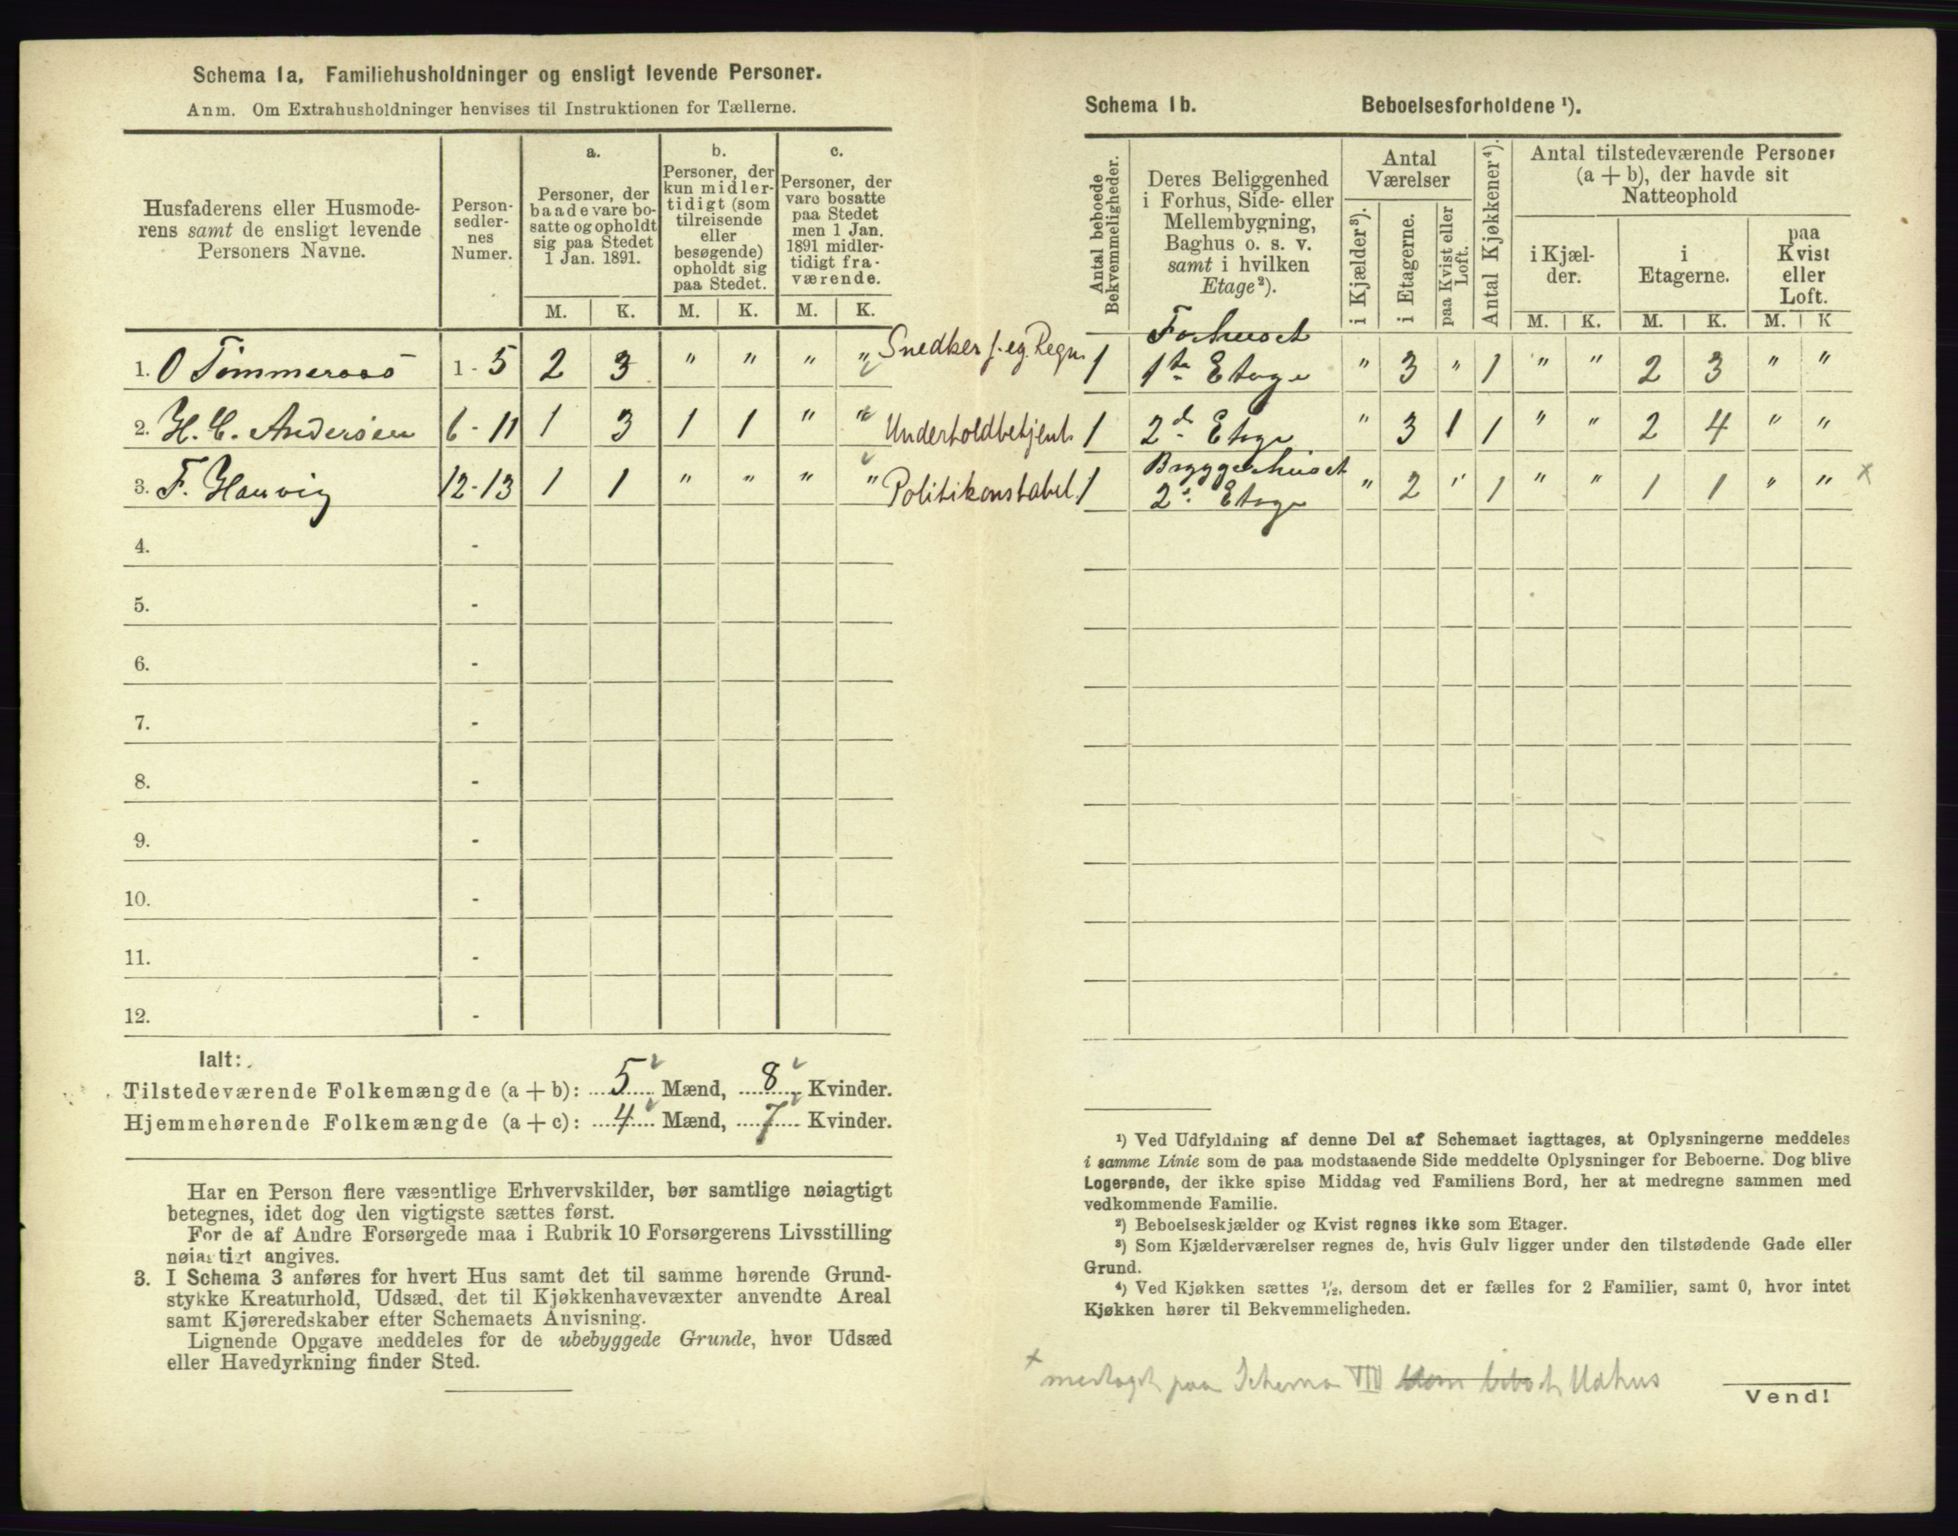 Schema 1a. Familiehusholdninger og ensligt levende Personer.
Anm. Om Extrahusholdninger henvises til Instruktionen for Tællerne.
Husfaderens eller Husmode-
rens samt de ensligt levende
Personers Navne.
Person-
sedler-
nes
Numer.
a.
Personer, der
baade vare bo-
satte og opholdt
sig paa Stedet
1 Jan. 1891.
b.
Personer, der
kun midler-
tidigt (som
tilreisende
eller
besøgende)
opholdt sig
paa Stedet.
c.
Personer, der
vare bosatte
paa Stedet
men 1 Jan.
1891 midler-
tidigt fra-
værende.
M. K. M. K. M. K.
1. O Tømmeraas 1 - 5 2 3 " " " " Snedker f. eg. Regn.
2. H. C. Andersen 6 - 11 1 3 1 1 " " Underholdbetjent
3. F. Hauvig 12 - 13 1 1 " " " " Politikonstabel.
4. -
5. -
6. -
7. -
8. -
9. -
10. -
11. -
12. -
Ialt:
Tilstedeværende Folkemængde (a + b): 5 Mænd, 8 Kvinder.
Hjemmehørende Folkemængde (a + c): 4 Mænd, 7 Kvinder.
Har en Person flere væsentlige Erhvervskilder, bør samtlige nøiagtigt
betegnes, idet dog den vigtigste sættes først.
For de af Andre Forsørgede maa i Rubrik 10 Forsørgerens Livsstilling
nøiagtigt angives.
3. I Schema 3 anføres for hvert Hus samt det til samme hørende Grund-
stykke Kreaturhold, Udsæd, det til Kjøkkenhavevæxter anvendte Areal
samt Kjøreredskaber efter Schemaets Anvisning.
Lignende Opgave meddeles for de ubebyggede Grunde, hvor Udsæd
eller Havedyrkning finder Sted.
Schema 1b. Beboelsesforholdene ¹).
Antal beboede
Bekvemmeligheder.
Deres Beliggenhed
i Forhus, Side- eller
Mellembygning,
Baghus o. s. v.
samt i hvilken
Etage²).
Antal
Værelser
i Kjælder³).
i Etagerne.
paa Kvist eller
Loft.
Antal Kjøkkener⁴).
Antal tilstedeværende Personer
(a + b), der havde sit
Natteophold
i Kjæl-
der.
i
Etagerne.
paa
Kvist
eller
Loft.
M. K. M. K. M. K
Forhuset
1 1ste Etage " 3 " 1 " " 2 3 " "
1 2den Etage " 3 1 1 " " 2 4 " "
Bryggerhuset
1 2. Etage " 2 " 1 " " 1 1 " " x
¹) Ved Udfyldning af denne Del af Schemaet iagttages, at Oplysningerne meddeles
i samme Linie som de paa modstaaende Side meddelte Oplysninger for Beboerne. Dog blive
Logerende, der ikke spise Middag ved Familiens Bord, her at medregne sammen med
vedkommende Familie.
²) Beboelseskjælder og Kvist regnes ikke som Etager.
³) Som Kjælderværelser regnes de, hvis Gulv ligger under den tilstødende Gade eller
Grund.
⁴) Ved Kjøkken sættes ½, dersom det er fælles for 2 Familier, samt 0, hvor intet
Kjøkken hører til Bekvemmeligheden.
x medtaget paa Schema VIII som bebot Udhus
Vend!